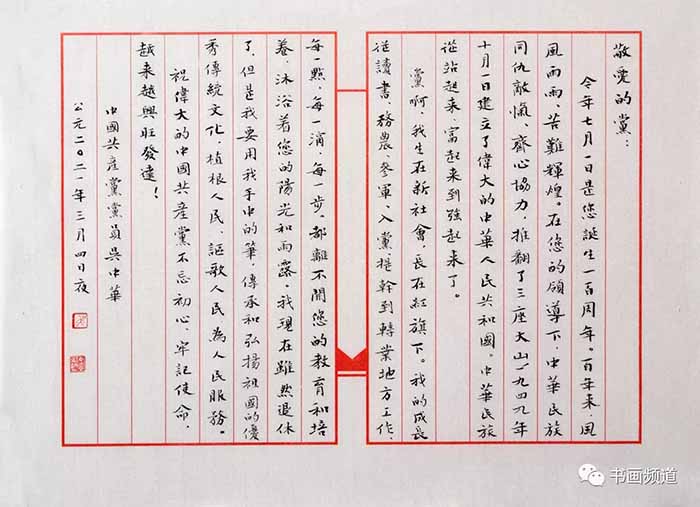 敬愛的黨：
今年七月一日是您誕生一百周年。百年来，風
風雨雨、苦難輝煌。在您的領導下，中華民族
同仇敵愾，齊心協力，推翻了三座大山，一九四九年
十月一日建立了偉大的中華人民共和國。中華民族
從站起来、富起来到強起来了。
黨啊，我生在新社會，長在紅旗下。我的成長
從讀書、務農、參軍、入黨、提幹到轉業地方工作，
每一點、每一滴、每一步，都離不開您的教育和培
養，沐浴着您的陽光和雨露。我現在雖然退休
了，但是我要用我手中的筆，傳承和弘揚祖國的優
秀傳統文化，植根人民、謳歌人民、為人民服務。
祝偉大的中國共産黨不忘初心、牢記使命，
越来越興旺發達！
中國共産黨黨員吳中華
公元二〇二一年三月四日夜
书画频道